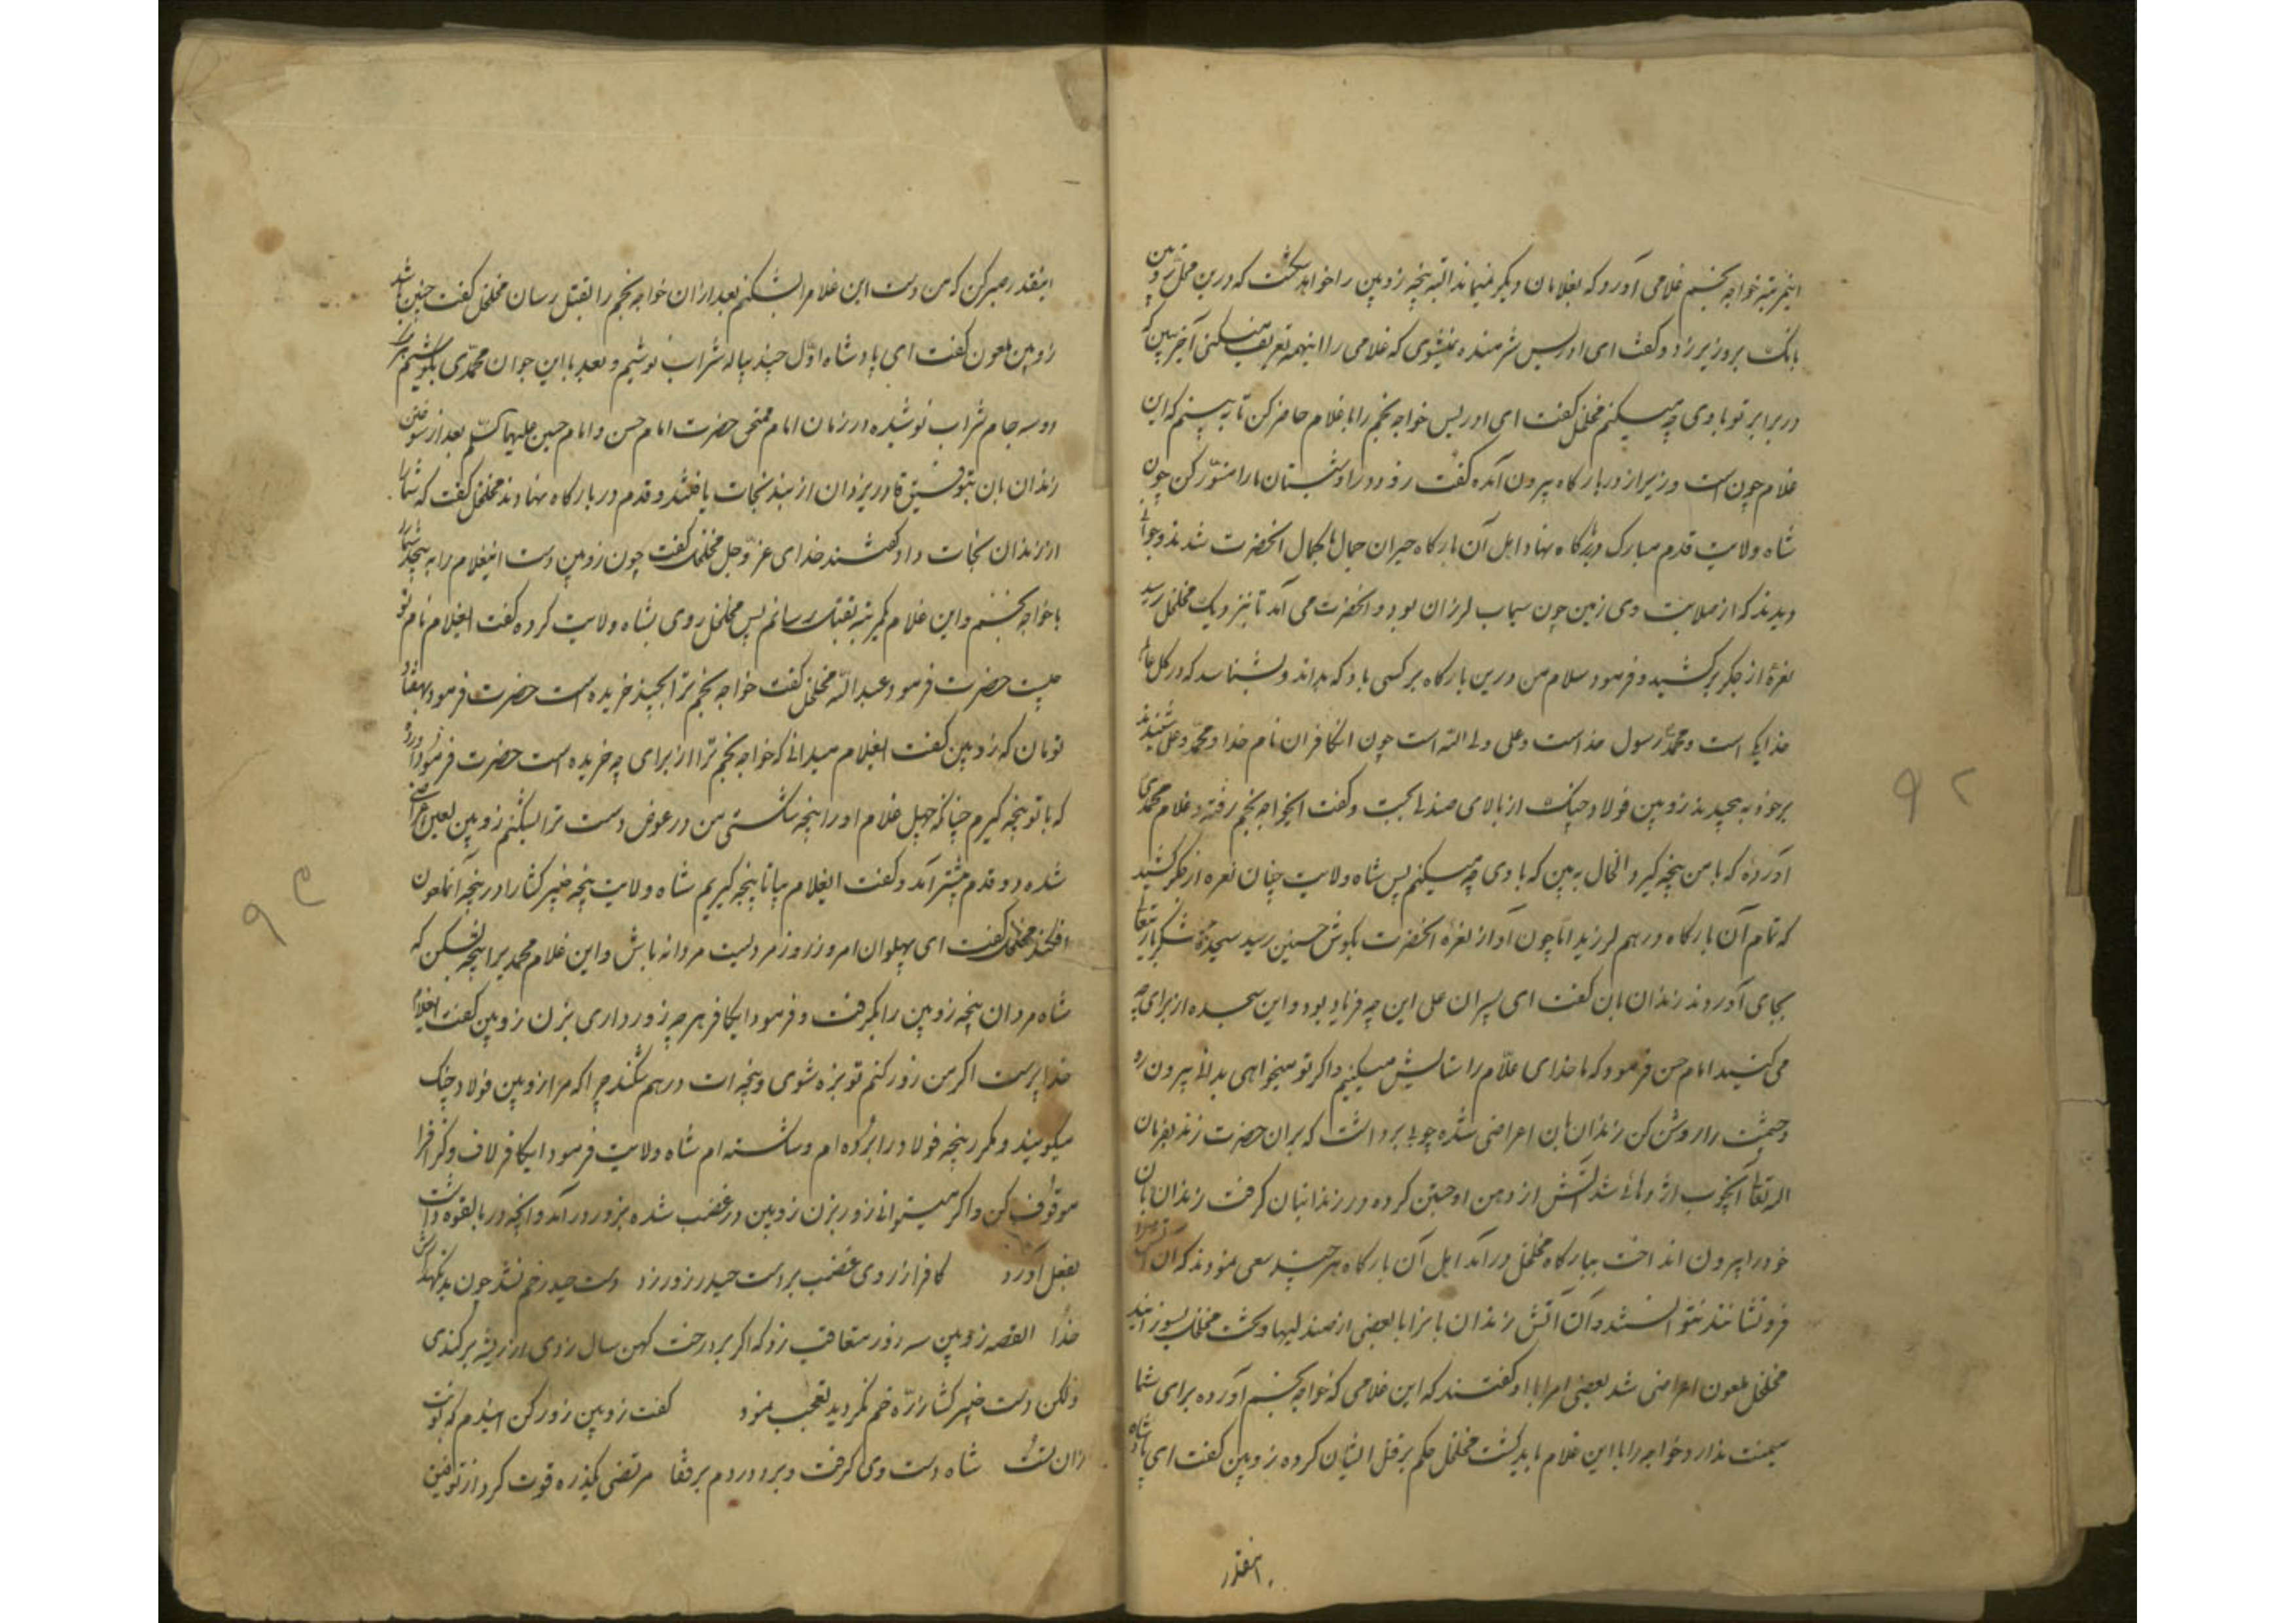 اینمرتبه خواجه نجم غلامی آورده که بغلامان دیگر نمیماند البته پنجه زوبین را خواهد شکست که درین محل زوبین
بانگ بر وزیر زد و گفت ای ادریس شرمنده نمیشوی که غلامی را اینهمه تعریف میکنی آخر ببین که
در برابر تو با وی چه میکنم مخلخل گفت ای ادریس خواجه نجم را با غلام حاضر کن تا به بینم که این
غلام چون است وزیر از در بارکاه بیرون آمده گفت زود درا و شبستان ما را منور کن چون
شاه ولایت قدم مبارک در بارکاه نهاد اهل آن بارکاه حیران جمال باکمال انحضرت شدند و جوانی
دیدند که از صلابت وی زمین چون سیماب لرزان بود و انحضرت می آمد تا بنزدیک مخلخل رسید
نعرهٔ از جکر برکشید و فرمود سلام من درین بارکاه بر کسی باد که بداند و بشناسد که در کل عالم
خدا یکی است و محمد رسول خداست و علی ولی الله است چون انکافران نام خدا و محمد و علی شنیدند
برخود به پیچیدند زوبین فولاد چنک از بالای صندلی بجست و گفت ایخواجه نجم رفته و غلام محمدی
آوردهٔ که با من پنجه گیرد الحال به بین که با وی چه میکنم پس شاه ولایت چنان نعره از جکر کشید
که تمام آن بارکاه درهم لرزید اما چون آواز نعرهٔ انحضرت بکوش حسنین رسید سجدهٔ شکر باریتعالی
بجای آوردند زندان بان گفت ای پسران علی این چه فریاد بود و این سجده از برای چه
می کنید امام حسن فرمود که ما خدای علام را ستایش میکنیم و اکر تو میخواهی بدانی بیرون رو
و چشمت را روشن کن زندان بان اعراضی شده چوبی برداشت که بران حضرت زند بفرمان
اله تعالی آنچوب اژدهائی شد آتش از دهن او جستن کرده در زندانبان گرفت زندان بان
خود را بیرون انداخت ببارکاه مخلخل درآمد اهل آن بارکاه هر چند سعی نمودند که آن آتش را
فرو نشانند نتوانستند و آن آتش زندان بانرا با بعضی از صندلیها و تخت مخلخل بسوزانید
مخلخل ملعون اعراضی شد بعضی امرا با او گفتند که این غلامی که خواجه نجم آورده برای شما
میمنت ندارد خواجه را با این غلام باید کشت مخلخل حکم بر قتل ایشان کرده زوبین گفت ای پادشاه
اینقدر
۹۲
اینقدر صبر کن که من دست این غلام را بشکنم بعد ازان خواجه نجم را بقتل رسان مخلخل گفت چنین باشد
زوبین ملعون گفت ای پادشاه اول چند پیاله شراب نوشیم و بعد با این جوان محمدی بکوشیم
دو سه جام شراب نوشیده در زمان امام ممتحن حضرت امام حسن و امام حسین علیهما السلم بعد از سوختن
زندان بان بتوفیق قادر یزدان از بند نجات یافتند و قدم در بارکاه نهادند مخلخل گفت که شما را
از زندان نجات داد گفتند خدای عز و جل مخلخل گفت چون زوبین دست اینغلام را به پیچد شما را
با خواجه نجم و این غلام یکمرتبه بقتل رسانم پس مخلخل روی بشاه ولایت کرده گفت ایغلام نام تو
چیست حضرت فرمود عبدالله مخلخل گفت خواجه نجم ترا بچند خریده است حضرت فرمود بهفتاد
تومان که زوبین گفت ایغلام میدانی که خواجه نجم ترا از برای چه خریده است حضرت فرمود آورده
که با تو پنجه گیرم چنانکه چهل غلام او را پنجه شکستی من در عوض دست ترا بشکنم زوبین لعین اعراضی
شده دو قدم پیشتر آمد و گفت ایغلام بیا تا پنجه گیریم شاه ولایت پنجه خیبر کشا را در پنجه آنملعون
افکند مخلخل گفت ای پهلوان امروز روز مردیست مردانه باش و این غلام محمدیرا پنجه بشکن که
شاه مردان پنجه زوبین را بگرفت و فرمود ایکافر هر چه زور داری بزن زوبین گفت ایغلام
خدا پرست اکر من زور کنم تو بزه شوی و پنجه ات درهم شکند چرا که مرا زوبین فولاد چنک
میکویند و مکرر پنجه فولاد را برده ام و شکسته ام شاه ولایت فرمود ایکافر لاف و کزاف را
موقوف کن و اکر میتوانی زور بزن زوبین در غضب شده بزور درآمد و آنچه در بالقوه داشت
بفعل آورد کافر از روی غضب بر دست حیدر زور زد دست حیدر خم نشد چون بد نکهدارش
خدا القصه زوبین سه زور متعاقب زد که اکر بر درخت کهن سال زدی از ریشه برکندی
ولکن دست خیبر کشا ذره خم نکردید تعجب نمود گفت زوبین زور کن ایندم که نوبت
زان تست شاه دست وی گرفت و برد در دم بر قفا مرتضی یکذره قوت کرد از توفیق
۹۳